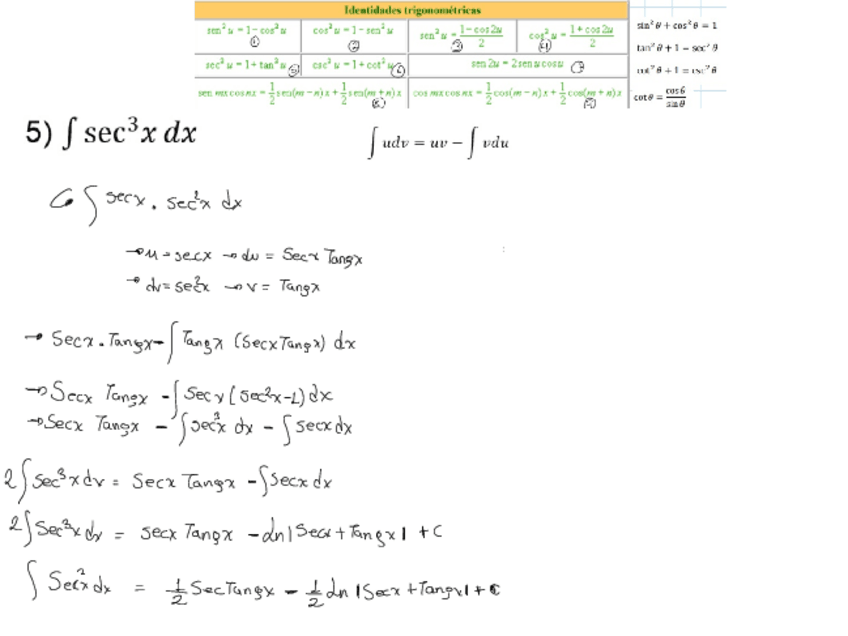 Identidades trigonométricas
sen² u = 1 - cos² u ① cos² u = 1 - sen² u ② sen² u = (1 - cos 2u)/2 ③ cos² u = (1 + cos 2u)/2 ④
sec² u = 1 + tan² u ⑤ csc² u = 1 + cot² u ⑥ sen 2u = 2 sen u cos u ⑦
sen mx cos nx = 1/2 sen(m - n)x + 1/2 sen(m + n)x ⑧ cos mx cos nx = 1/2 cos(m - n)x + 1/2 cos(m + n)x
sin² θ + cos² θ = 1
tan² θ + 1 = sec² θ
cot² θ + 1 = csc² θ
cot θ = cos θ/sin θ
5) ∫ sec³x dx
∫ udv = uv − ∫ vdu
∫ secx . sec²x dx
→ u = secx → du = Secx Tangx
→ dv = sec²x → v = Tangx
→ Secx . Tangx - ∫ Tangx (Secx Tangx) dx
→ Secx Tangx - ∫ Secx (sec²x-1) dx
→ Secx Tangx - ∫ sec³x dx - ∫ secx dx
2 ∫ Sec³x dx = Secx Tangx - ∫ secx dx
2 ∫ Sec³x dx = secx Tangx - ln | Secx + Tangx | + C
∫ Sec²x dx = 1/2 Sec Tangx - 1/2 ln | Secx + Tangx | + C